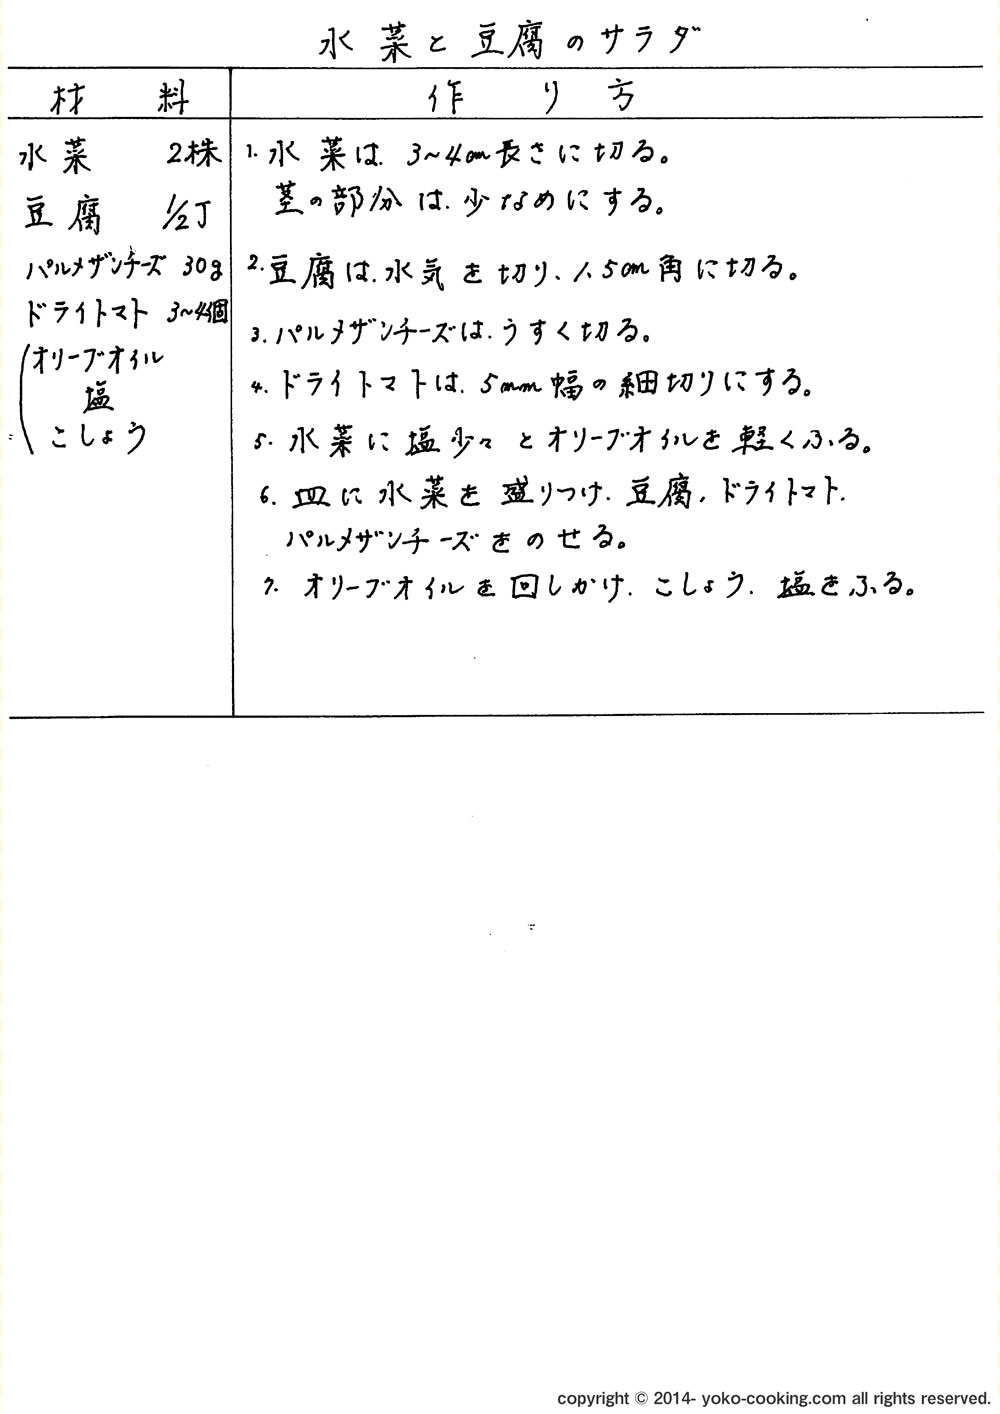 水菜と豆腐のサラダ
材料
作り方
水菜 2株
豆腐 1/2丁
パルメザンチーズ 30g
ドライトマト 3~4個
(オリーブオイル
塩
こしょう
1. 水菜は、3~4cm長さに切る。
茎の部分は、少なめにする。
2. 豆腐は、水気を切り、1.5cm角に切る。
3. パルメザンチーズは、うすく切る。
4. ドライトマトは、5mm幅の細切りにする。
5. 水菜に塩少々とオリーブオイルを軽くふる。
6. 皿に水菜を盛りつけ、豆腐、ドライトマト、
パルメザンチーズをのせる。
7. オリーブオイルを回しかけ、こしょう、塩をふる。
copyright © 2014- yoko-cooking.com all rights reserved.